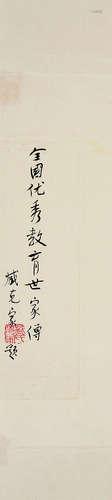 全国优秀教育世家傳
臧克家題